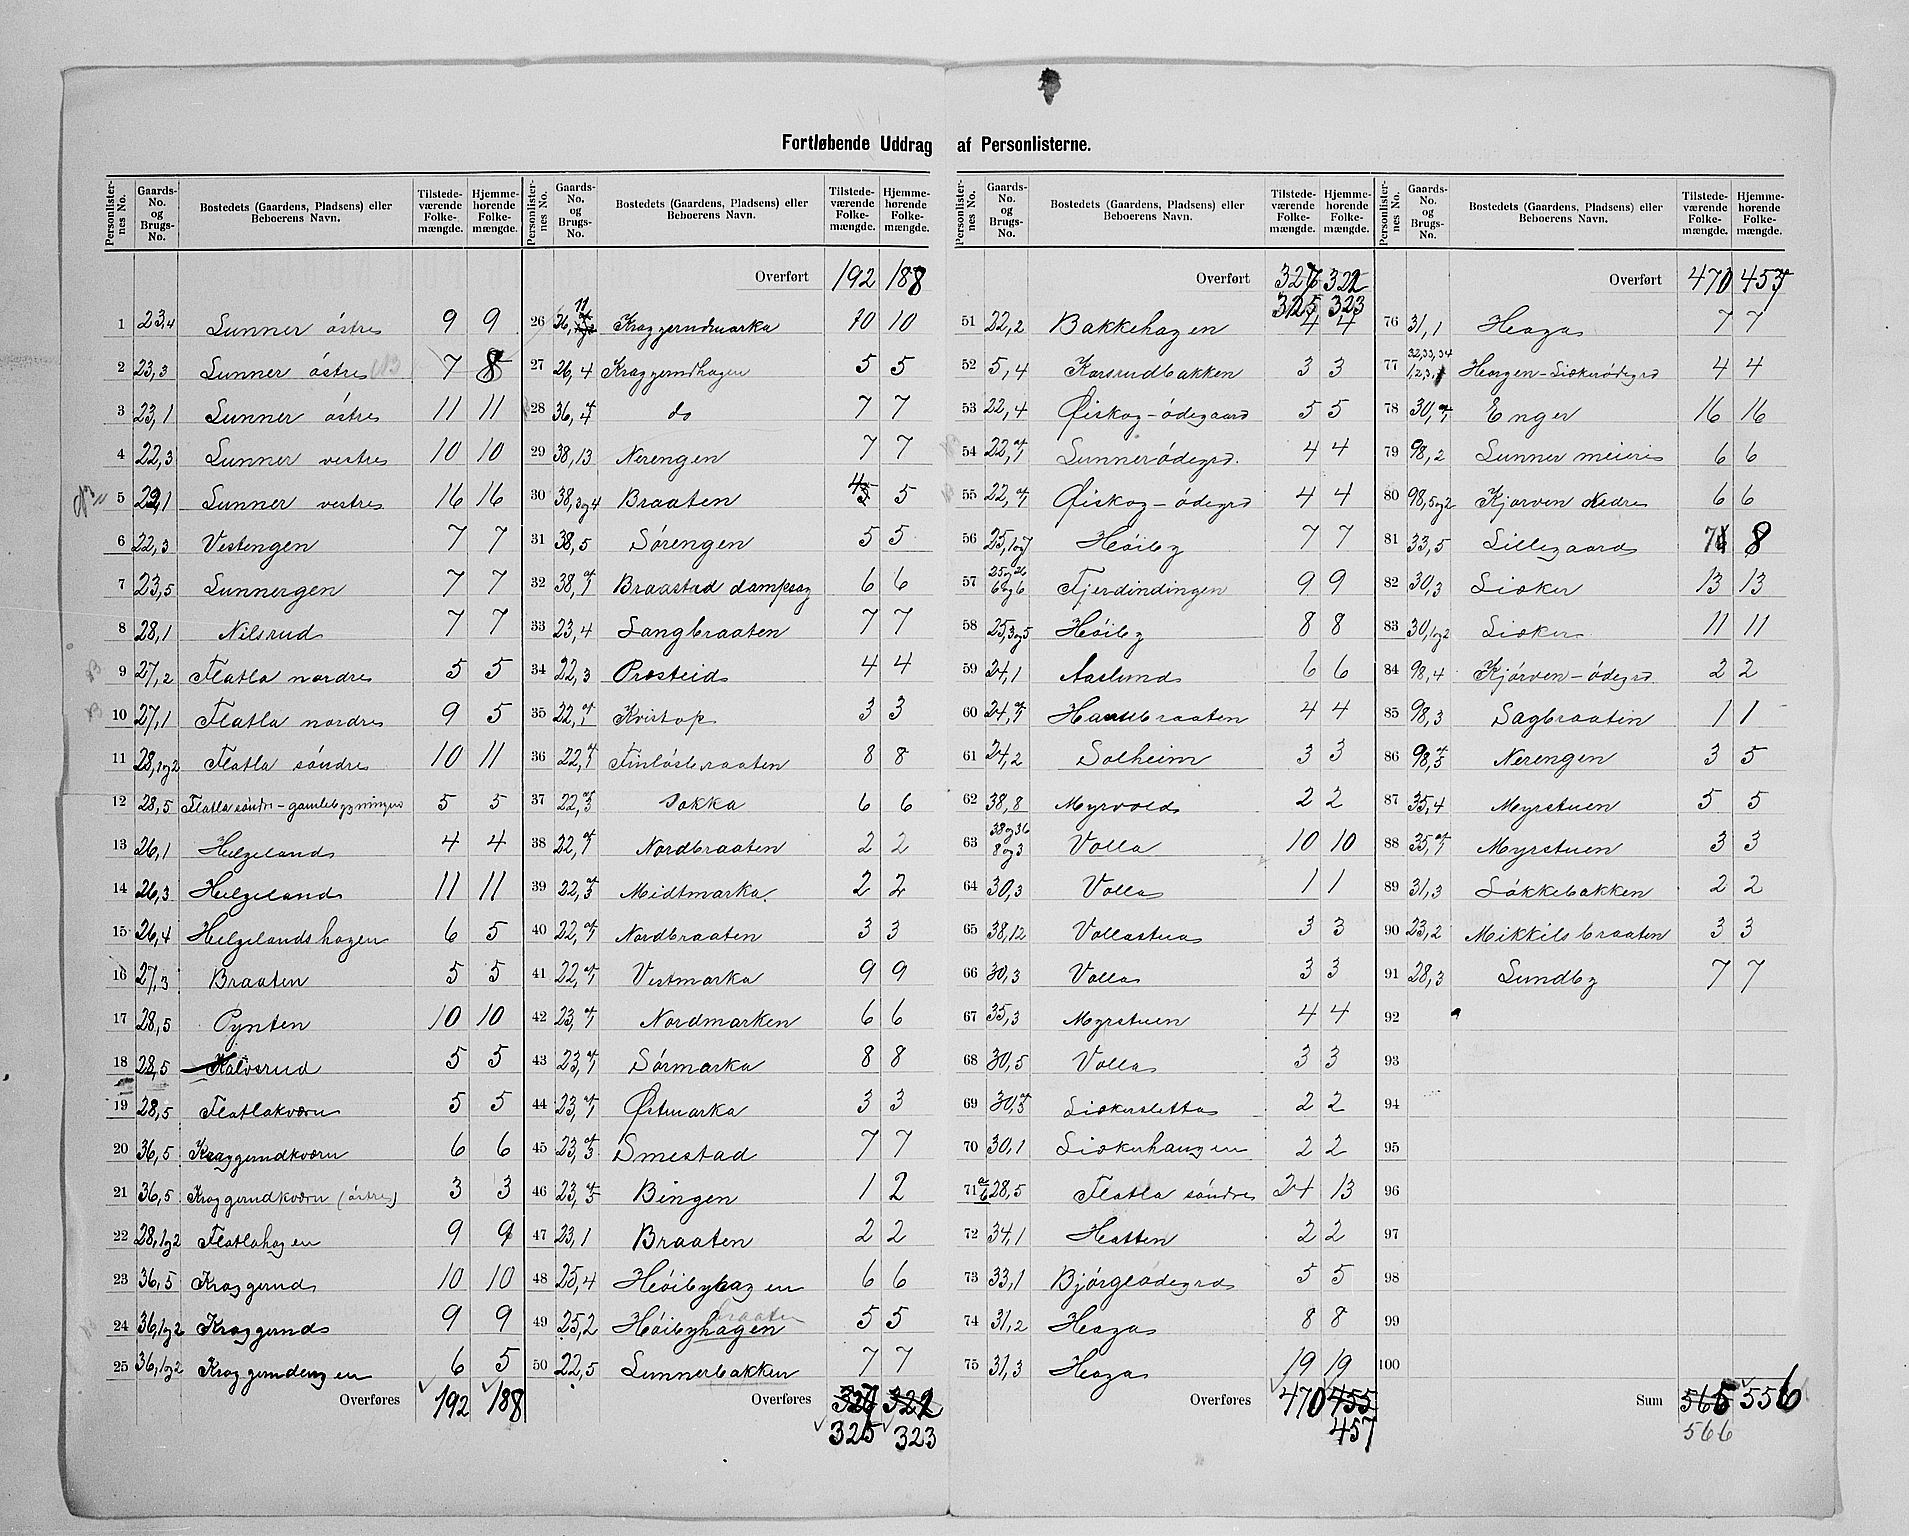 Fortløbende Uddrag af Personlisterne.
Personlister-nes No. Gaards-No. og Brugs-No. Bostedets (Gaardens, Pladsens) eller Beboerens Navn. Tilstede-værende Folke-mængde. Hjemme-hörende Folke-mængde.
1 23,4 Lunner östre 9 9
2 23,3 Lunner östre 7 8
3 23,1 Lunner östre 11 11
4 22,3 Lunner vestre 10 10
5 22,1 Lunner vestre 16 16
6 22,3 Vestengen 7 7
7 23,5 Lunnergen 7 7
8 28,1 Nilsrud 7 7
9 27,2 Flatla nordre 5 5
10 27,1 Flatla nordre 9 5
11 28,1og2 Flatla söndre 10 11
12 28,5 Flatla söndre - gamlebygningen 5 5
13 26,1 Helgeland 4 4
14 26,3 Helgeland 11 11
15 26,4 Helgelandshagen 6 5
16 27,3 Braaten 5 5
17 28,5 Pynten 10 10
18 28,5 Kalvsrud 5 5
19 28,5 Flatlakværn 5 5
20 36,5 Kraggerudkværn 6 6
21 36,5 Kraggerudkværn (östre) 3 3
22 28,1og2 Flatlahagen 9 9
23 36,5 Kraggerud 10 10
24 36,1og2 Kraggerud 9 9
25 36,1og2 Kraggerudengen 6 5
Overføres 192 188
Personlister-nes No. Gaards-No. og Brugs-No. Bostedets (Gaardens, Pladsens) eller Beboerens Navn. Tilstede-værende Folke-mængde. Hjemme-hörende Folke-mængde.
Overført 192 188
26 36, Kraggerudmarka 10 10
27 26,4 Kraggerudhagen 5 5
28 36,4 do 7 7
29 38,13 Nerengen 7 7
30 38,3og4 Braaten 4 5
31 38,5 Sørengen 5 5
32 38,af1 Braastad dampsag 6 6
33 23,4 Langbraaten 7 7
34 22,3 Præsteid 4 4
35 22,af1 Kvistop 3 3
36 22,af1 Finlösbraaten 8 8
37 22,af3 Sokka 6 6
38 22,af1 Nordbraaten 2 2
39 22,af3 Midtmarka. 2 2
40 22,af1 Nordbraaten 3 3
41 22,af1 Vestmarka 9 9
42 23,af1 Nordmarken 6 6
43 23,af1 Sørmarka 8 8
44 23,af1 Østmarka 3 3
45 23,af3 Smestad 7 7
46 23,af5 Bingen 1 2
47 23,1 Braaten 2 2
48 25,4 Høibyhagen 6 6
49 25,2 Høibyhagen braaten 5 5
50 22,5 Lunnerbakken 7 7
Overføres 327 322
325 323
Personlister-nes No. Gaards-No. og Brugs-No. Bostedets (Gaardens, Pladsens) eller Beboerens Navn. Tilstede-værende Folke-mængde. Hjemme-hörende Folke-mængde.
Overført 327 322
325 323
51 22,2 Bakkehagen 4 4
52 5,4 Karsrudbakken 3 3
53 22,4 Øiskog-ödegaard 5 5
54 22,af1 Lunnerödegrd. 4 4
55 22,af1 Øiskog-ödegrd 4 4
56 25,1og7 Høiby 7 7
57 25og26 6og6 Fjerdindingen 9 9
58 25,3og5 Høiby 8 8
59 24,1 Aaslund 6 6
60 24,af1 Haslebraaten 4 4
61 24,2 Solheim 3 3
62 38,8 Myrvold 2 2
63 38og36 8og3 Volla 10 10
64 30,3 Volla 1 1
65 38,12 Vollastua 3 3
66 30,3 Volla 3 3
67 35,3 Myrstuen 4 4
68 30,5 Volla 3 3
69 30,af5 Liokersletta 2 2
70 30,1 Liokerhaugen 2 2
71 a b 28,5 Flatla söndre 24 13
72 34,1 Hatten 2 2
73 33,1 Bjørgeödegrd 5 5
74 31,2 Haga 8 8
75 31,3 Haga 19 19
Overføres 470 455
457
Personlister-nes No. Gaards-No. og Brugs-No. Bostedets (Gaardens, Pladsens) eller Beboerens Navn. Tilstede-værende Folke-mængde. Hjemme-hörende Folke-mængde.
Overført 470 457
76 31,1 Haga 7 7
77 32,33,34 1,2,3,1 Hagen-Liokerödegrd 4 4
78 30,af1 Enger 16 16
79 98,2 Lunner meieri 6 6
80 98,5og2 Kjørven Nedre 6 6
81 33,5 Lillegaard 7 8
82 30,3 Lioker 13 13
83 30,1og2 Lioker 11 11
84 98,4 Kjørven-ödegrd 2 2
85 98,3 Sagbraatin 1 1
86 98,af5 Nerengen 3 5
87 35,4 Myrstuen 5 5
88 35,af1 Myrstuen 3 3
89 31,3 Løkkebakken 2 2
90 23,2 Mikkilsbraaten 3 3
91 28,3 Lundby 7 7
92
93
94
95
96
97
98
99
100
Sum 565 556
566